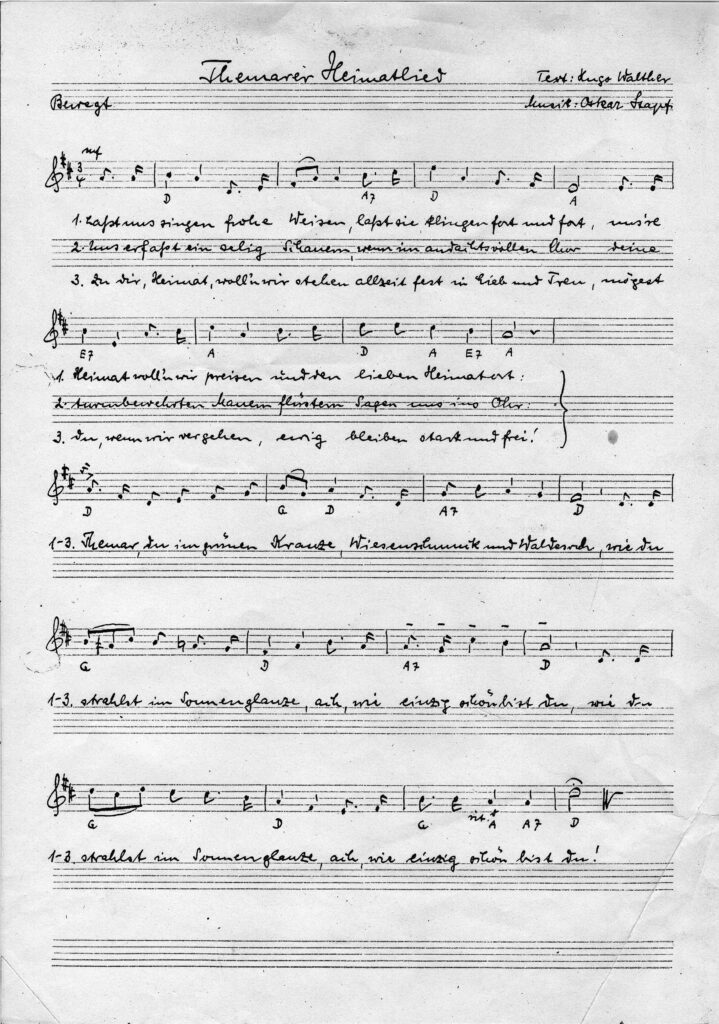 Themarer Heimatlied
Text: Hugo Walther
Bewegt
Musik: Oskar Stapf
mf
D A7 D A
1. Laßt uns singen frohe Weisen, laßt sie klingen fort und fort, uns're
2. Uns erfaßt ein selig Schauern, wenn im andachtsvollen Chor deine
3. Zu dir, Heimat, woll'n wir stehen allzeit fest in Lieb und Treu, mögest
E7 A D A E7 A
1. Heimat woll'n wir preisen und den lieben Heimatort:
2. turmbewehrten Mauern flüstern Sagen uns ins Ohr:
3. du, wenn wir vergehen, ewig bleiben stark und frei!
D G D A7 D
1-3. Themar, du im grünen Kranze, Wiesenschmuck und Waldesruh, wie du
G D A7 D
1-3. strahlst im Sonnenglanze, ach, wie einzig schön bist du, wie du
G D G rit. A A7 D
1-3. strahlst im Sonnenglanze, ach, wie einzig schön bist du!